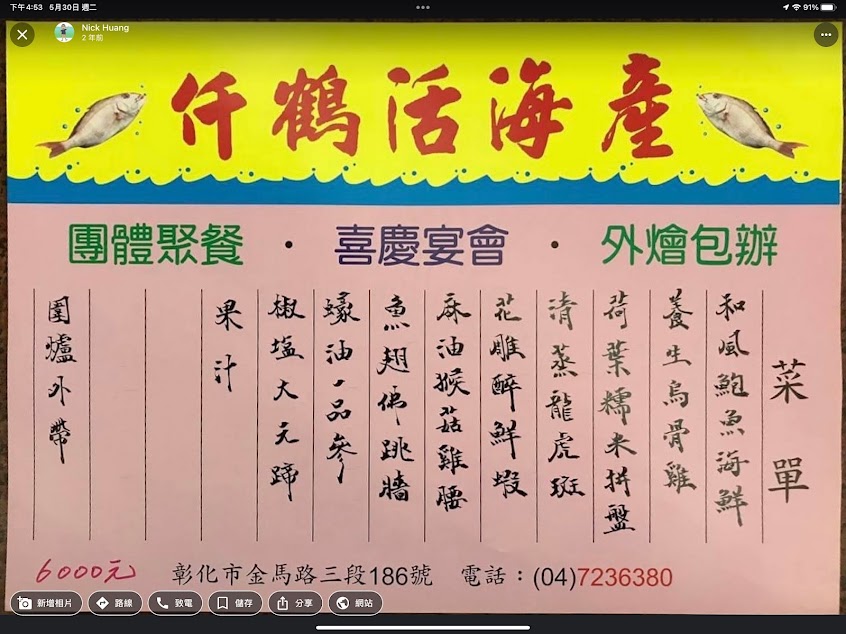 下午4:53 5月30日 週二
91%
Nick Huang
2 年前
仟鶴活海產
團體聚餐・喜慶宴會・外燴包辦
菜單
和風鮑魚海鮮
養生烏骨雞
荷葉糯米拼盤
清蒸龍虎斑
花雕醉鮮蝦
麻油猴菇雞腰
魚翅佛跳牆
蠔油一品參
椒塩大元蹄
果汁
圍爐外帶
6000元
彰化市金馬路三段186號 電話:(04)7236380
新增相片 路線 致電 儲存 分享 網站